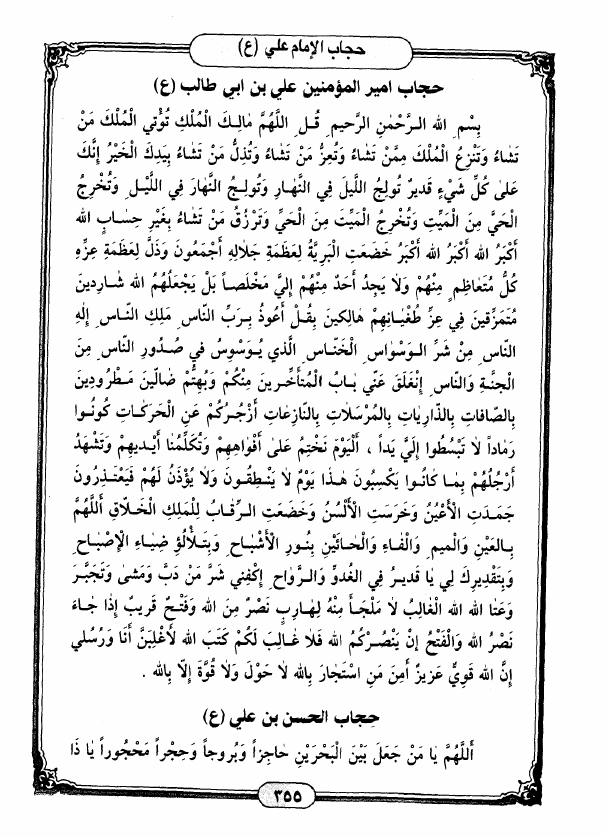 حجاب الإمام علي (ع)
حجاب امير المؤمنين علي بن ابي طالب (ع)
بِسْمِ الله الرَّحْمٰنِ الرَّحيمِ قُلِ اللَّهُمَّ مٰالِكَ الْمُلْكِ تُؤْتي الْمُلْكَ مَنْ
تَشٰاءُ وَتَنْزِعُ الْمُلْكَ مِمَّنْ تَشٰاءُ وَتُعِزُّ مَنْ تَشٰاءُ وَتُذِلُّ مَنْ تَشٰاءُ بِيَدِكَ الْخَيْرُ إِنَّكَ
عَلىٰ كُلِّ شَيْءٍ قَديرٌ تُولِجُ اللَّيلَ فِي النَّهارِ وَتُولِجُ النَّهٰارَ فِي اللَّيْلِ وَتُخْرِجُ
الْحَيَّ مِنَ الْمَيِّتِ وَتُخْرِجُ الْمَيِّتَ مِنَ الْحَيِّ وَتَرْزُقُ مَنْ تَشٰاءُ بِغَيْرِ حِسٰابٍ الله
أَكْبَرُ الله أَكْبَرُ الله أَكْبَرُ خَضَعَتِ الْبَرِيَّةُ لِعَظَمَةِ جَلالِهِ أَجْمَعُونَ وَذَلَّ لِعَظَمَةِ عِزِّهِ
كُلُّ مُتَعٰاظِمٍ مِنْهُمْ وَلاٰ يَجِدُ أَحَدٌ مِنْهُمْ إِلَيَّ مَخْلَصاً بَلْ يَجْعَلُهُمُ الله شٰارِدينَ
مُتَمَزِّقينَ فِي عِزِّ طُغْيٰانِهِمْ هٰالِكينَ بِقُلْ أَعُوذُ بِرَبِّ النّاسِ مَلِكِ النّاسِ إِلٰهِ
النّاسِ مِنْ شَرِّ الْوَسْوٰاسِ الْخَنّاسِ الَّذي يُوَسْوِسُ في صُدُورِ النّاسِ مِنَ
الْجِنَّةِ وَالنّاسِ إِنْغَلَقَ عَنّي بٰابُ الْمُتَأَخِّرينَ مِنْكُمْ وَبُهِتُّمْ ضٰالّينَ مَطْرُودينَ
بِالصّافّاتِ بِالذّارِيٰاتِ بِالْمُرْسَلاٰتِ بِالنّازِعٰاتِ أَزْجُرُكُمْ عَنِ الْحَرَكٰاتِ كُونُوا
رَمٰاداً لاٰ تَبْسُطُوا إِلَيَّ يَداً ، أَلْيَوْمَ نَخْتِمُ عَلىٰ أَفْوٰاهِهِمْ وَتُكَلِّمُنٰا أَيْديهِمْ وَتَشْهَدُ
أَرْجُلُهُمْ بِمٰا كٰانُوا يَكْسِبُونَ هٰذٰا يَوْمُ لاٰ يَنْطِقُونَ وَلاٰ يُؤْذَنُ لَهُمْ فَيَعْتَذِرُونَ
جَمَدَتِ الْأَعْيُنُ وَخَرِسَتِ الْأَلْسُنُ وَخَضَعَتِ الرِّقٰابُ لِلْمَلِكِ الْخَلاّقِ أَللَّهُمَّ
بِالْعَيْنِ وَالْميمِ وَالْفٰاءِ وَالْحٰائَيْنِ بِنُورِ الْأَشْبٰاحِ وَبِتَلَأْلُؤِ ضِيٰاءِ الْإِصْبٰاحِ
وَبِتَقْديرِكَ لي يٰا قَديرُ فِي الْغُدُوِّ وَالرَّوٰاحِ إِكْفِني شَرَّ مَنْ دَبَّ وَمَشىٰ وَتَجَبَّرَ
وَعَتٰا الله الله الْغٰالِبُ لاٰ مَلْجَأَ مِنْهُ لِهٰارِبٍ نَصْرٌ مِنَ الله وَفَتْحٌ قَريبٌ إِذٰا جٰاءَ
نَصْرُ الله وَالْفَتْحُ إِنْ يَنْصُرْكُمُ الله فَلاٰ غٰالِبَ لَكُمْ كَتَبَ الله لَأَغْلِبَنَّ أَنَا وَرُسُلي
إِنَّ الله قَوِيٌّ عَزيزٌ أَمِنَ مَنِ اسْتَجٰارَ بِالله لاٰ حَوْلَ وَلاٰ قُوَّةَ إِلّا بِالله .
حجاب الحسن بن علي (ع)
أَللَّهُمَّ يٰا مَنْ جَعَلَ بَيْنَ الْبَحْرَيْنِ حٰاجِزاً وَبُرُوجاً وَحِجْراً مَحْجُوراً يٰا ذَا
٣٥٥